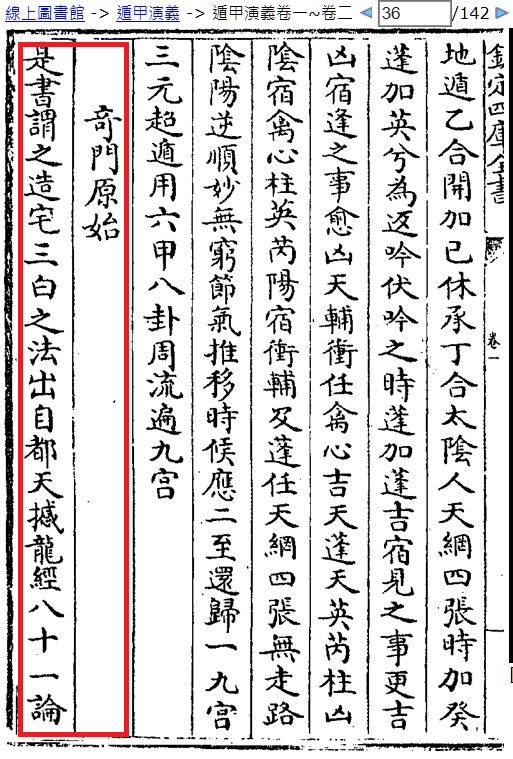 線上圖書館 -> 遁甲演義 -> 遁甲演義卷一~卷二 36 /142
欽定四庫全書
卷一
地遁乙合開加己休承丁合太陰人天網四張時加癸
蓬加英兮為返吟伏吟之時蓬加蓬吉宿見之事更吉
凶宿逢之事愈凶天輔衝任禽心吉天蓬天英芮柱凶
陰宿禽心柱英芮陽宿衝輔及蓬任天網四張無走路
陰陽逆順妙無窮節氣推移時候應二至還歸一九宮
三元超遁用六甲八卦周流遍九宮
奇門原始
是書謂之造宅三白之法出自都天撼龍經八十一論